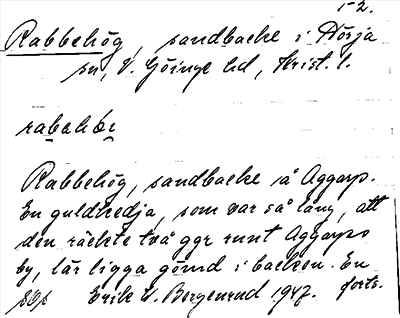 1-2.
Rabbehög, sandbacke i Hörja
sn, V. Göinge hd, Krist. l.
Rabbehög, sandbacke i Aggarp.
En guldkedja, som var så lång, att
den räckte två ggr runt Aggarps
by, lär ligga gömd i backen. En
forts.
Erik W. Bergenrud 1947.